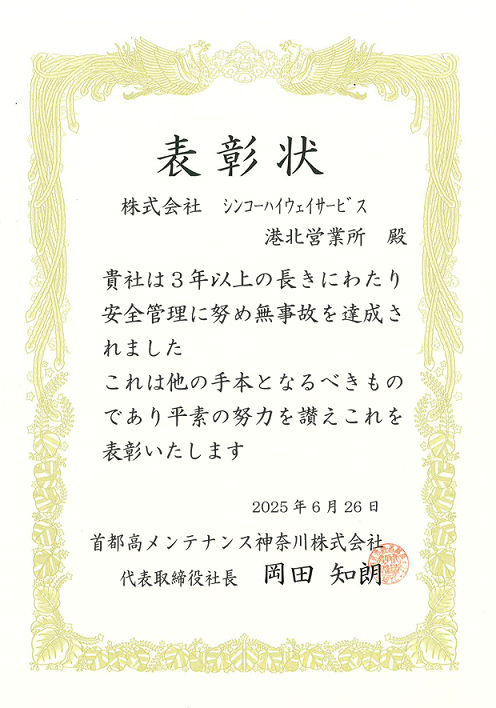 表彰状
株式会社　ｼﾝｺｰﾊｲｳｪｲｻｰﾋﾞｽ
港北営業所　殿
貴社は３年以上の長きにわたり
安全管理に努め無事故を達成さ
れました
これは他の手本となるべきもの
であり平素の努力を讃えこれを
表彰いたします
2025年6月26日
首都高メンテナンス神奈川株式会社
代表取締役社長　岡田　知朗